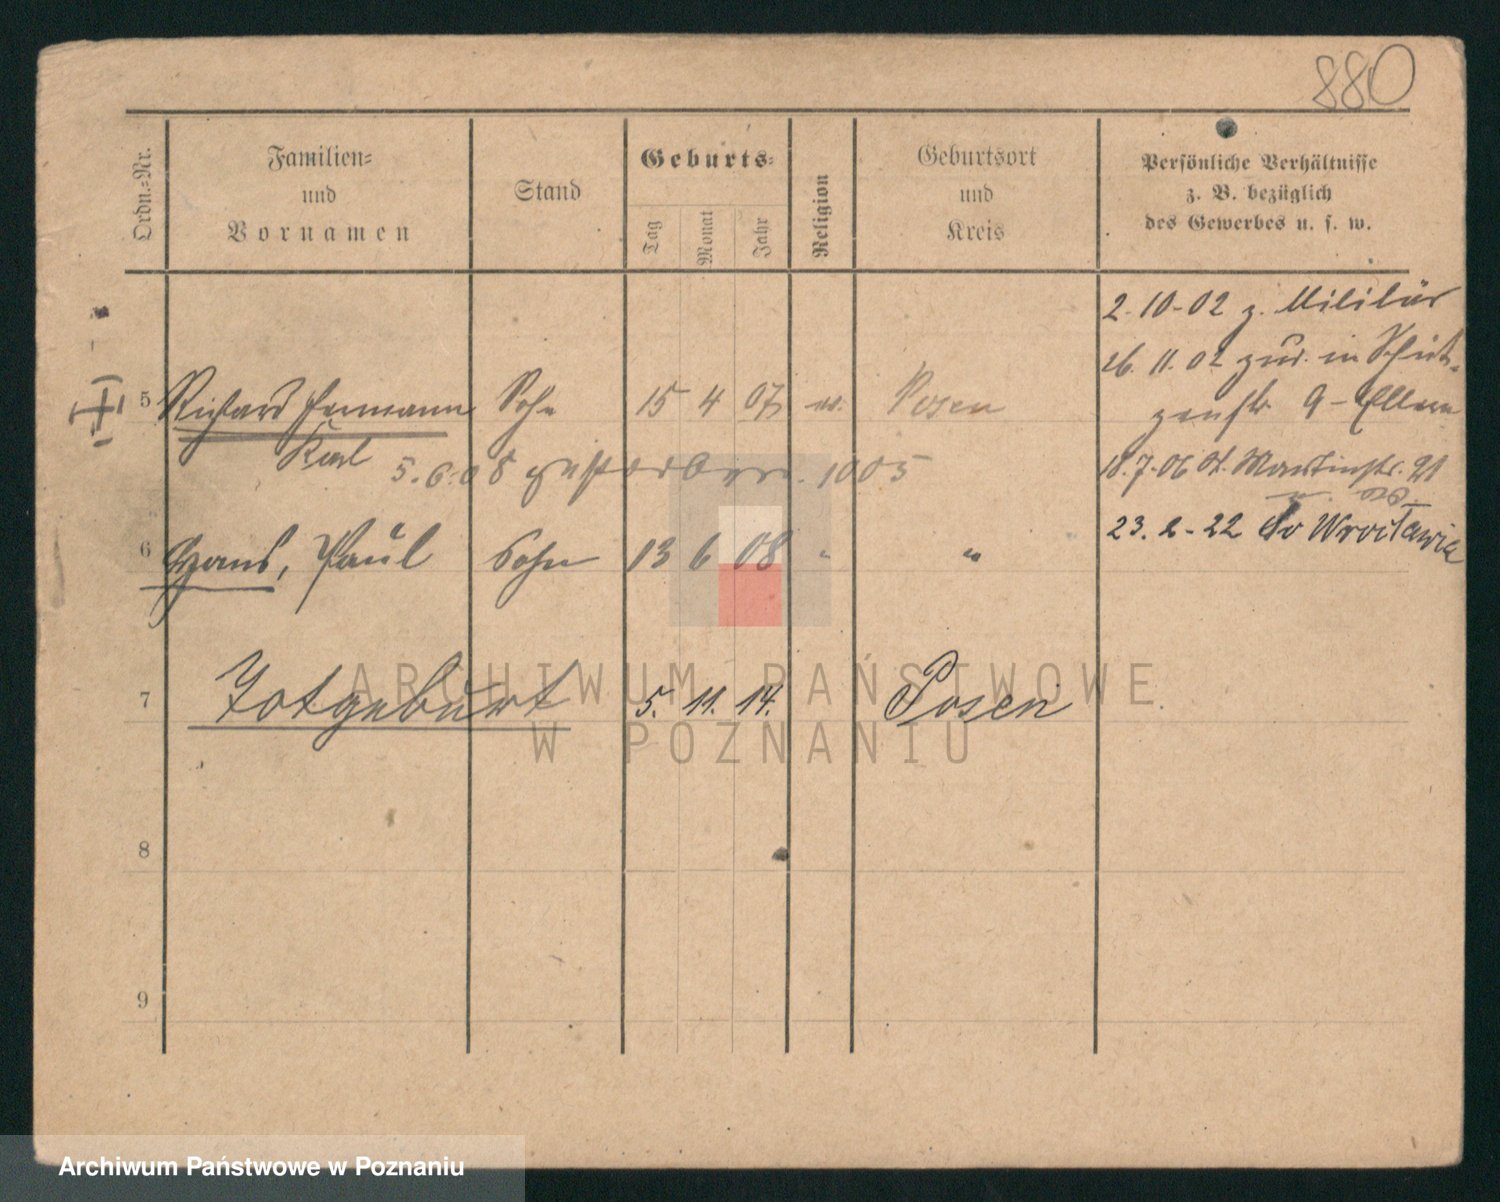 880
Ordn.-Nr.
Familien-
und
Vornamen
Stand
Geburts-
Tag
Monat
Jahr
Religion
Geburtsort
und
Kreis
Persönliche Verhältnisse
z. B. bezüglich
des Gewerbes u. s. w.
2.10-02 z. Militär
26. 11. 02 zur. in Schüt-
zenstr. 9 - Eltern
18.7.06 St. Martinstr. 21
23. 2 - 22 do Wrocławia
5 Richard Hermann Sohn 15 4 07 Posen
Karl
5.6.08 gestorben 1005
6 Hans, Paul Sohn 13 6 08 " "
7 Totgeburt 5. 11. 14. Posen
8
9
ARCHIWUM PAŃSTWOWE
W POZNANIU
Archiwum Państwowe w Poznaniu